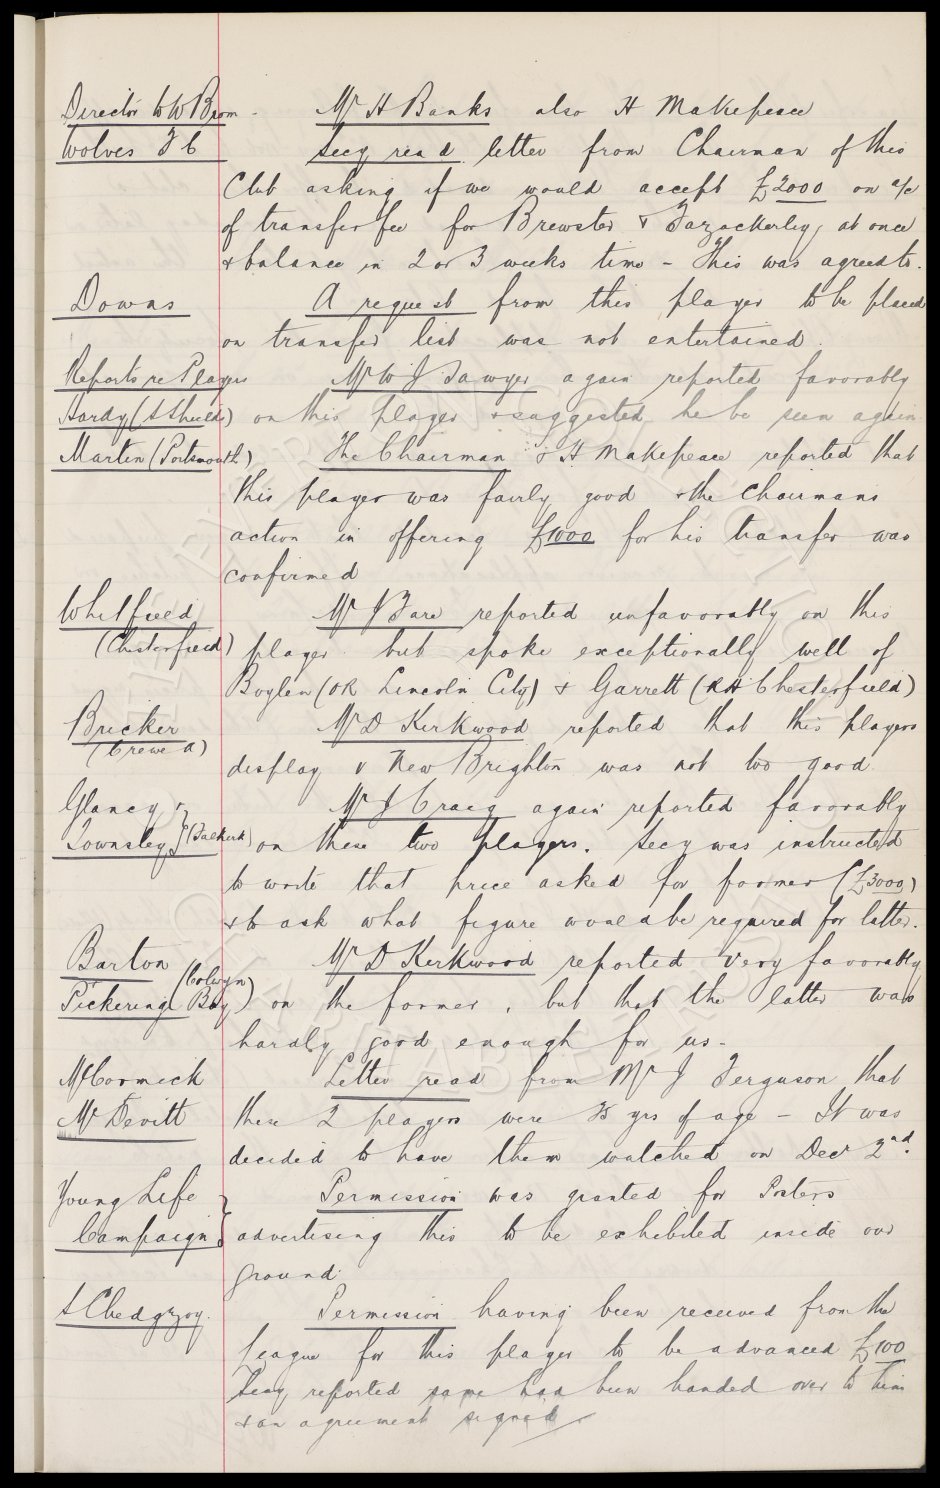 Director to W Brom - Mr H Banks also H Makepeace
Wolves F C Secy read letter from Chairman of this
Club asking if we would accept £2000 on a/c
of transfer fee for Brewster & Fazackerley, at once
& balance in 2 or 3 weeks time - This was agreed to.
Downs A request from this player to be placed
on transfer list was not entertained.
Reports re Players Mr W J Sawyer again reported favorably
Hardy (S Shields) on this player & suggested he be seen again
Martin (Portsmouth) The Chairman & H Makepeace reported that
this player was fairly good & the Chairmans
action in offering £1000 for his transfer was
confirmed
Whitfield Mr J Fare reported unfavorably on this
(Chesterfield) player but spoke exceptionally well of
Boylen (OR Lincoln City) & Garrett (RH Chesterfield)
Bricker Mr D Kirkwood reported that this players
(Crewe A) display v New Brighton was not too good
Glancy & Mr J Craig again reported favorably
Townsley } (Falkirk) on these two players. Secy was instructed
to write that price asked for former (£3000)
& to ask what figure would be required for latter.
Barton Mr D Kirkwood reported very favorably
Pickering (Colwyn Bay) on the former, but that the latter was
hardly good enough for us -
McCormick Letter read from Mr J Ferguson that
McDevitt these 2 players were 25 yrs of age - It was
decided to have them watched on Decr 2nd.
Young Life Permission was granted for Posters
Campaign } advertising this to be exhibited inside our
ground.
S Chedgzoy. Permission having been received from the
League for this player to be advanced £100
Secy reported same had been handed over to him
& an agreement signed